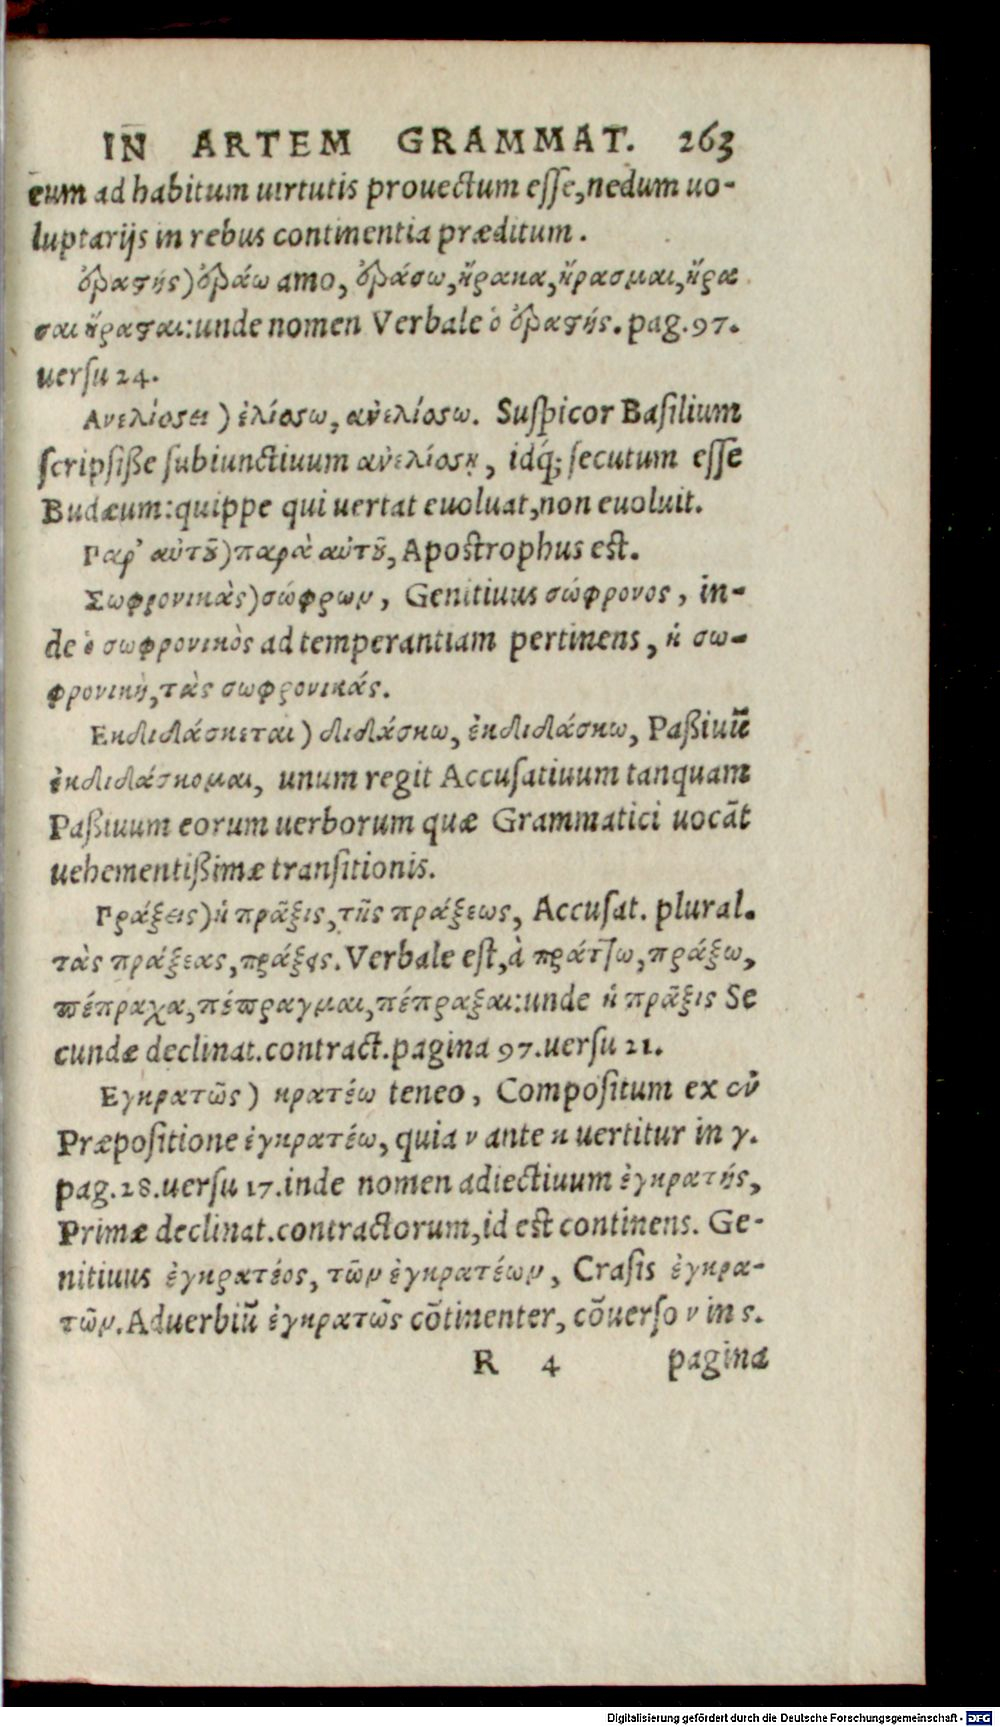 IN ARTEM GRAMMAT. 263
eum ad habitum uirtutis prouectum esse, nedum uo-
luptarijs in rebus continentia præditum.
ἐραστής) ἐράω amo, ἐράσω, ἤρακα, ἤρασμαι, ἤρα
σαι ἤρασται: unde nomen Verbale ὁ ἐραστής. pag. 97.
uersu 24.
Ανελίοσει) ἑλίοσω, ἀνελίοσω. Suspicor Basilium
scripsiße subiunctiuum ἀνελίοσῃ, idq́; secutum esse
Budæum: quippe qui uertat euoluat, non euoluit.
Γαρ' αὐτȣ͂) παρὰ αὐτȣ͂, Apostrophus est.
Σωφρονικὰς) σώφρων, Genitiuus σώφρονος, in-
de ὁ σωφρονικὸς ad temperantiam pertinens, ἡ σω-
φρονικὴ, τὰς σωφρονικάς.
Εκδιδάσκεται) διδάσκω, ἐκδιδάσκω, Paßiuū
ἐκδιδάσκομαι, unum regit Accusatiuum tanquam
Paßiuum eorum uerborum quæ Grammatici uocāt
uehementißimæ transitionis.
Γράξεις) ἡ πρᾶξις, τῆς πράξεως, Accusat. plural.
τὰς πράξεας, πράξεις. Verbale est, à πράτ͞ω, πράξω,
πέπραχα, πέπραγμαι, πέπραξαι: unde ἡ πρᾶξις Se
cundæ declinat. contract. pagina 97. uersu 21.
Εγκρατῶς) κρατέω teneo, Compositum ex ἐν
Præpositione ἐγκρατέω, quia ν ante κ uertitur in γ.
pag. 28. uersu 17. inde nomen adiectiuum ἐγκρατής,
Primæ declinat. contractorum, id est continens. Ge-
nitiuus ἐγκρατέος, τῶν ἐγκρατέων, Crasis ἐγκρα-
τῶν. Aduerbiū ἐγκρατῶς cōtinenter, cōuerso ν in ς.
R 4 pagina
Digitalisierung gefördert durch die Deutsche Forschungsgemeinschaft - DFG